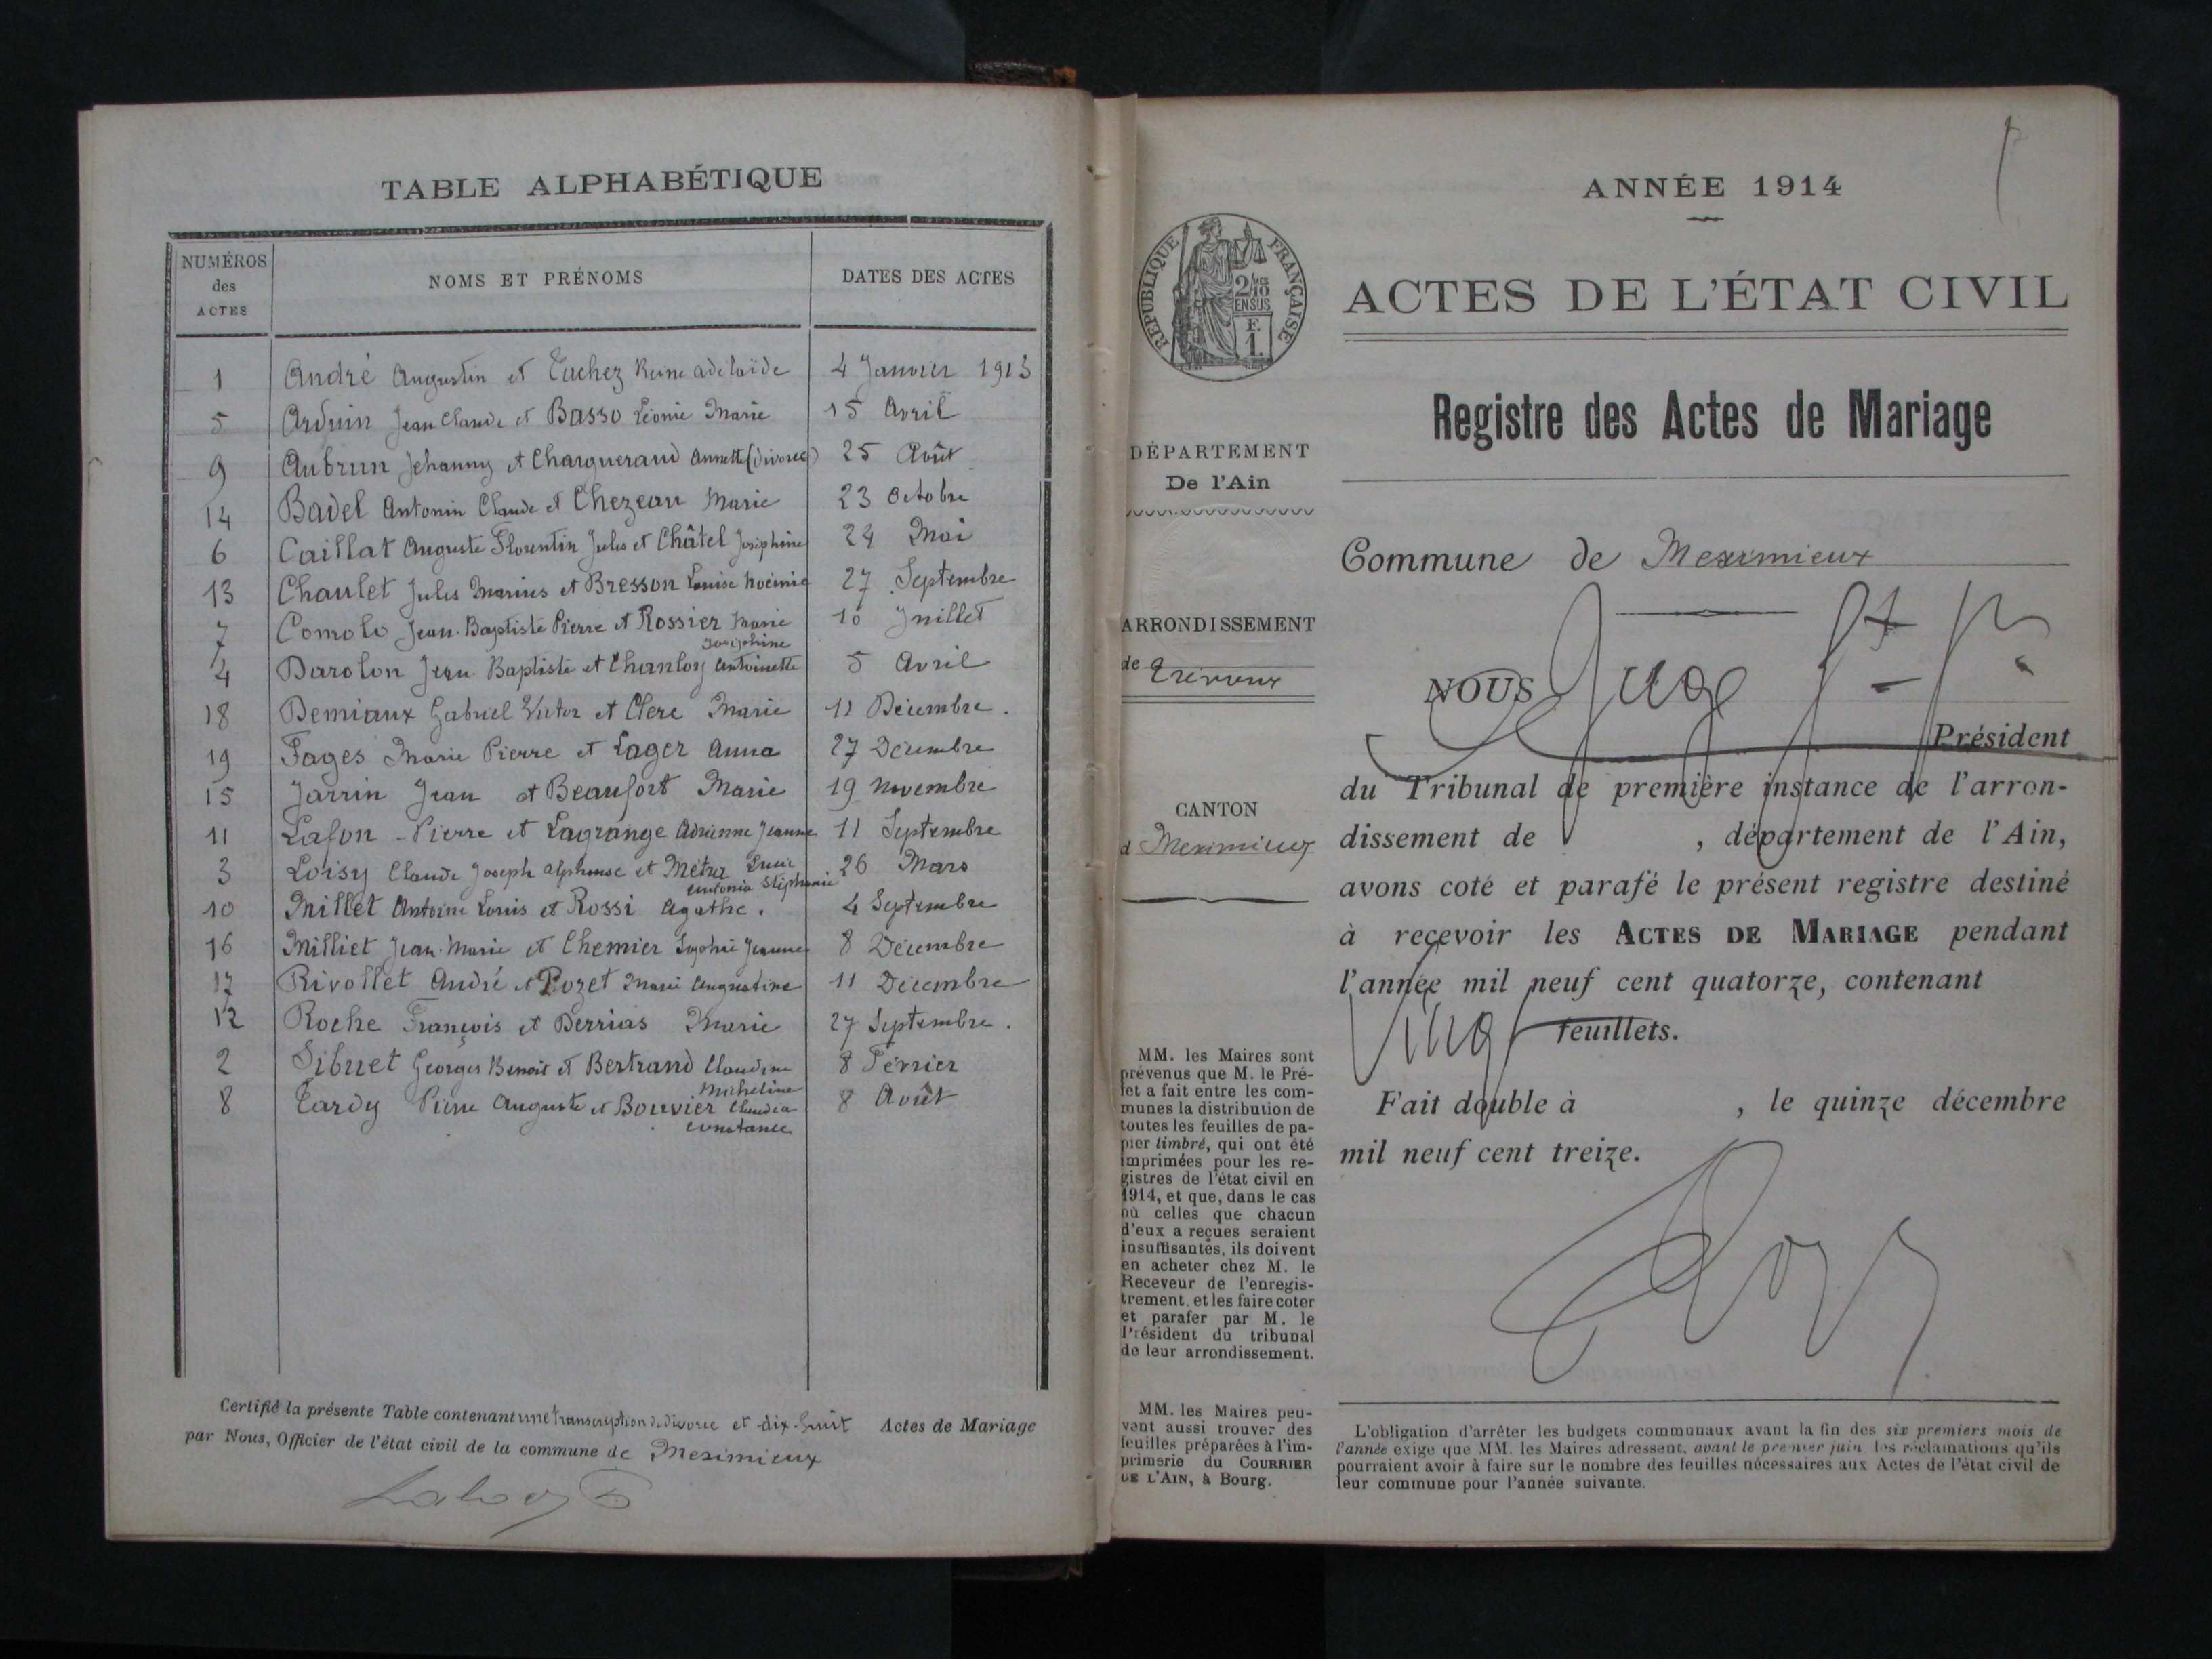 TABLE ALPHABÉTIQUE
NUMÉROS des ACTES
NOMS ET PRÉNOMS
DATES DES ACTES
1 André Augustin et Tuchez Reine adélaïde 4 Janvier 1913
5 Arduin Jean Claude et Basso Léonie Marie 15 Avril
9 Aubrun Jehanny et Chargueraud Annette (divorce) 25 Août
14 Badel Antonin Claude et Chezeau Marie 23 Octobre
6 Caillat Auguste Florentin Jules et Châtel Joséphine 24 Mai
13 Chaulet Jules Marius et Bresson Louise Noémie 27 Septembre
7 Comolo Jean-Baptiste Pierre et Rossier Marie Joséphine 10 Juillet
4 Darolon Jean Baptiste et Chanloy Antoinette 5 Avril
18 Demiaux Gabriel Victor et Clerc Marie 11 Décembre.
19 Fages Marie Pierre et Lager Anna 27 Décembre
15 Jarrin Jean et Beaufort Marie 19 Novembre
11 Lafon - Pierre et Lagrange Adrienne Jeanne 11 Septembre
3 Loisy Claude Joseph Alphonse et Métra Lucie Antonia Stéphanie 26 Mars
10 Millet Antoine Louis et Rossi Agathe. 4 Septembre
16 Milliet Jean-Marie et Chemier Sophie Jeanne 8 Décembre
17 Rivollet André et Pozet Marie Augustine 11 Décembre
12 Roche François et Berrias Marie 27 Septembre.
2 Sibuet Georges Benoit et Bertrand Claudine Micheline 8 Février
8 Tardy Pierre Auguste et Bouvier Claudia Constance 8 Août
Certifié la présente Table contenant une transcription de divorce et dix-huit Actes de Mariage
par Nous, Officier de l'état civil de la commune de Meximieux
ANNÉE 1914
RÉPUBLIQUE FRANÇAISE
2/10 MES
EN SUS
F.
1.
ACTES DE L'ÉTAT CIVIL
Registre des Actes de Mariage
DÉPARTEMENT
De l'Ain
ARRONDISSEMENT
de Trévoux
CANTON
d Meximieux
MM. les Maires sont
prévenus que M. le Pré-
fet a fait entre les com-
munes la distribution de
toutes les feuilles de pa-
pier timbré, qui ont été
imprimées pour les re-
gistres de l'état civil en
1914, et que, dans le cas
où celles que chacun
d'eux a reçues seraient
insuffisantes, ils doivent
en acheter chez M. le
Receveur de l'enregis-
trement, et les faire coter
et parafer par M. le
Président du tribunal
de leur arrondissement.
MM. les Maires peu-
vent aussi trouver des
feuilles préparées à l'im-
primerie du COURRIER
DE L'AIN, à Bourg.
Commune de Meximieux
NOUS Juge
Président
du Tribunal de première instance de l'arron-
dissement de , département de l'Ain,
avons coté et parafé le présent registre destiné
à recevoir les ACTES DE MARIAGE pendant
l'année mil neuf cent quatorze, contenant
Vingt feuillets.
Fait double à , le quinze décembre
mil neuf cent treize.
L'obligation d'arrêter les budgets communaux avant la fin des six premiers mois de
l'année exige que MM. les Maires adressent, avant le premier juin, les réclamations qu'ils
pourraient avoir à faire sur le nombre des feuilles nécessaires aux Actes de l'état civil de
leur commune pour l'année suivante.